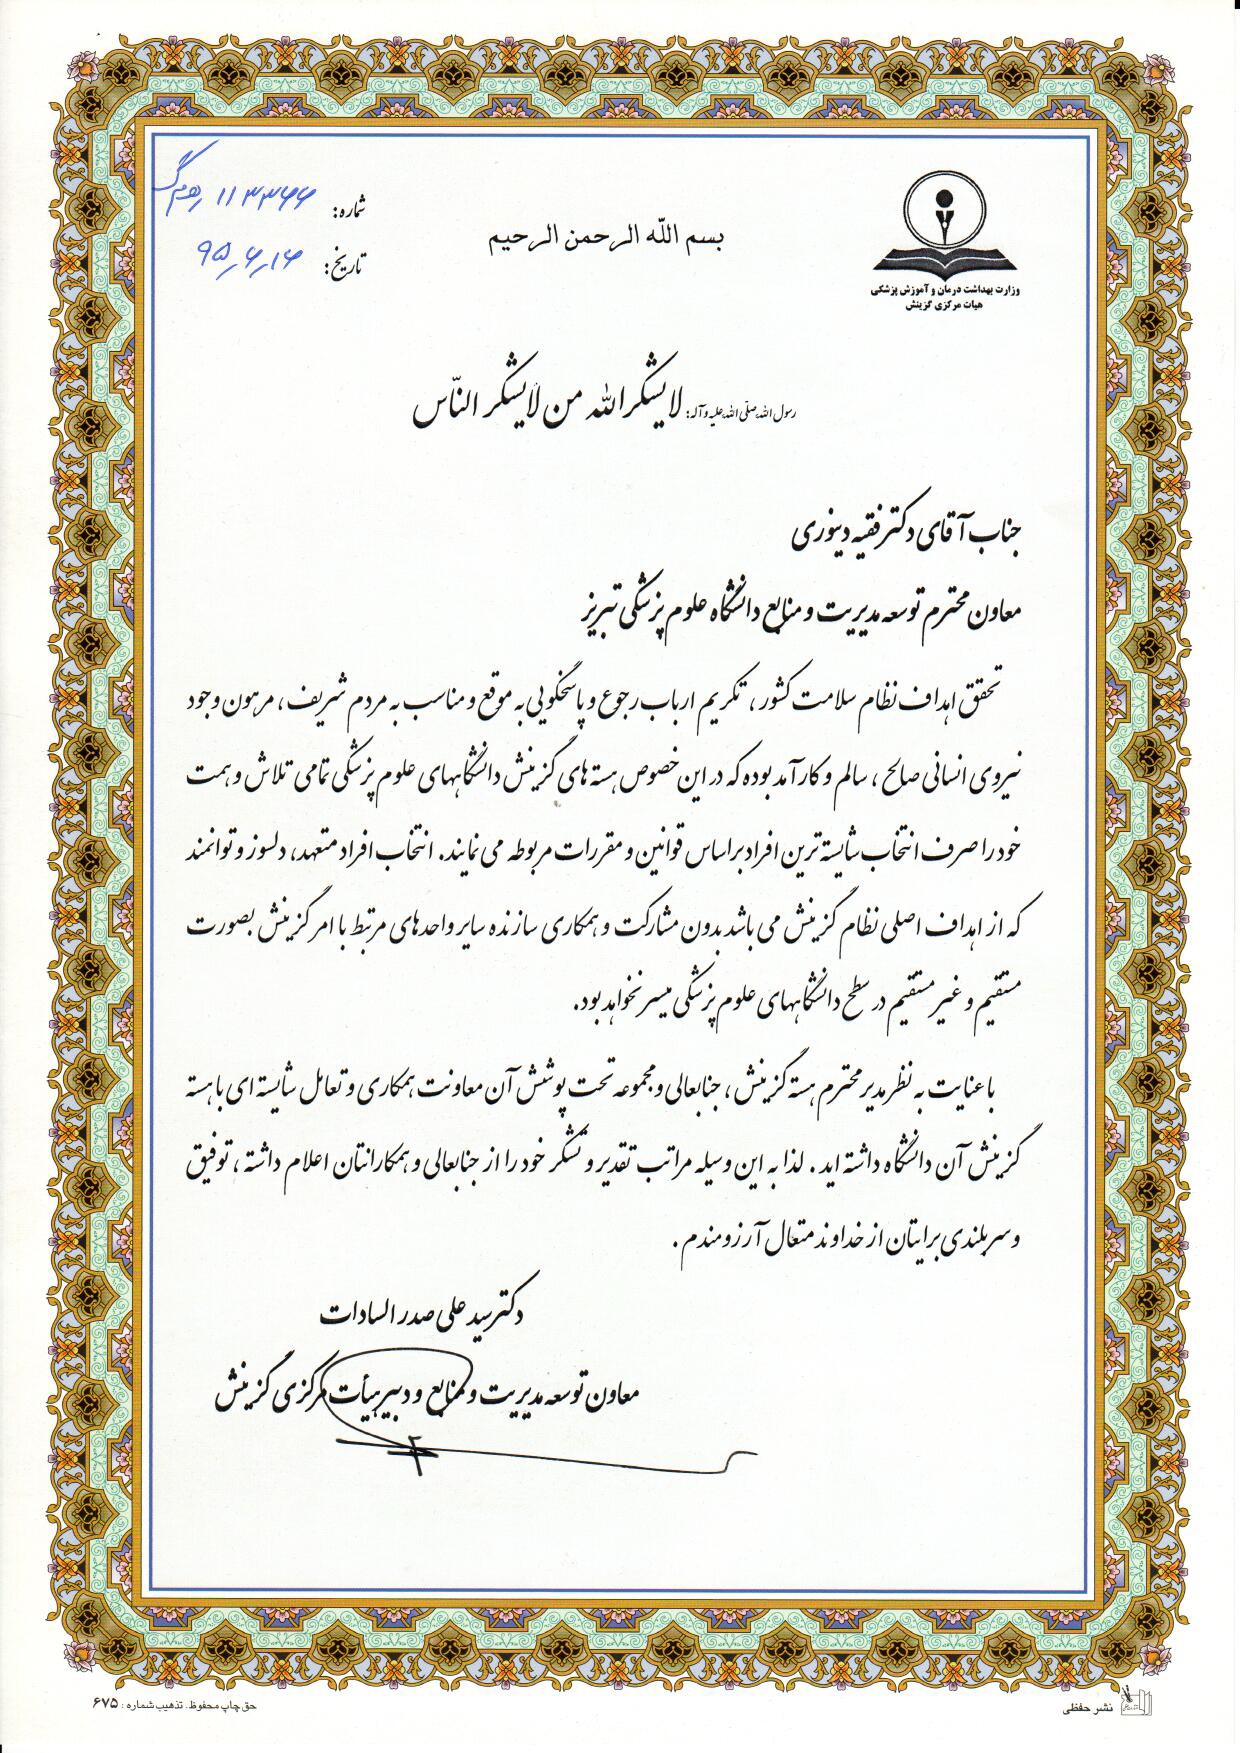 بسم الله الرحمن الرحیم
وزارت بهداشت درمان و آموزش پزشکی
هیات مرکزی گزینش
شماره: ۱۱۳۳۶۶
تاریخ: ۹۵٫۶٫۱۶
رسول الله صلّی الله علیه و آله: لا یشکر الله من لا یشکر النّاس
جناب آقای دکتر فقیه دینوری
معاون محترم توسعه مدیریت و منابع دانشگاه علوم پزشکی تبریز
تحقق اهداف نظام سلامت کشور، تکریم ارباب رجوع و پاسخگویی به موقع و مناسب به مردم شریف، مرهون وجود
نیروی انسانی صالح، سالم و کارآمد بوده که در این خصوص هسته های گزینش دانشگاههای علوم پزشکی تمامی تلاش و همت
خود را صرف انتخاب شایسته ترین افراد براساس قوانین و مقررات مربوطه می نمایند. انتخاب افراد متعهد، دلسوز و توانمند
که از اهداف اصلی نظام گزینش می باشد بدون مشارکت و همکاری سازنده سایر واحدهای مرتبط با امر گزینش بصورت
مستقیم و غیر مستقیم در سطح دانشگاههای علوم پزشکی میسر نخواهد بود.
با عنایت به نظر مدیر محترم هسته گزینش، جنابعالی و مجموعه تحت پوشش آن معاونت همکاری و تعامل شایسته ای با هسته
گزینش آن دانشگاه داشته اید. لذا به این وسیله مراتب تقدیر و تشکر خود را از جنابعالی و همکارانتان اعلام داشته، توفیق
و سربلندی برایتان از خداوند متعال آرزومندم.
دکتر سید علی صدر السادات
معاون توسعه مدیریت و منابع و دبیر هیأت مرکزی گزینش
نشر حفظی
حق چاپ محفوظ. تذهیب شماره: ۶۷۵